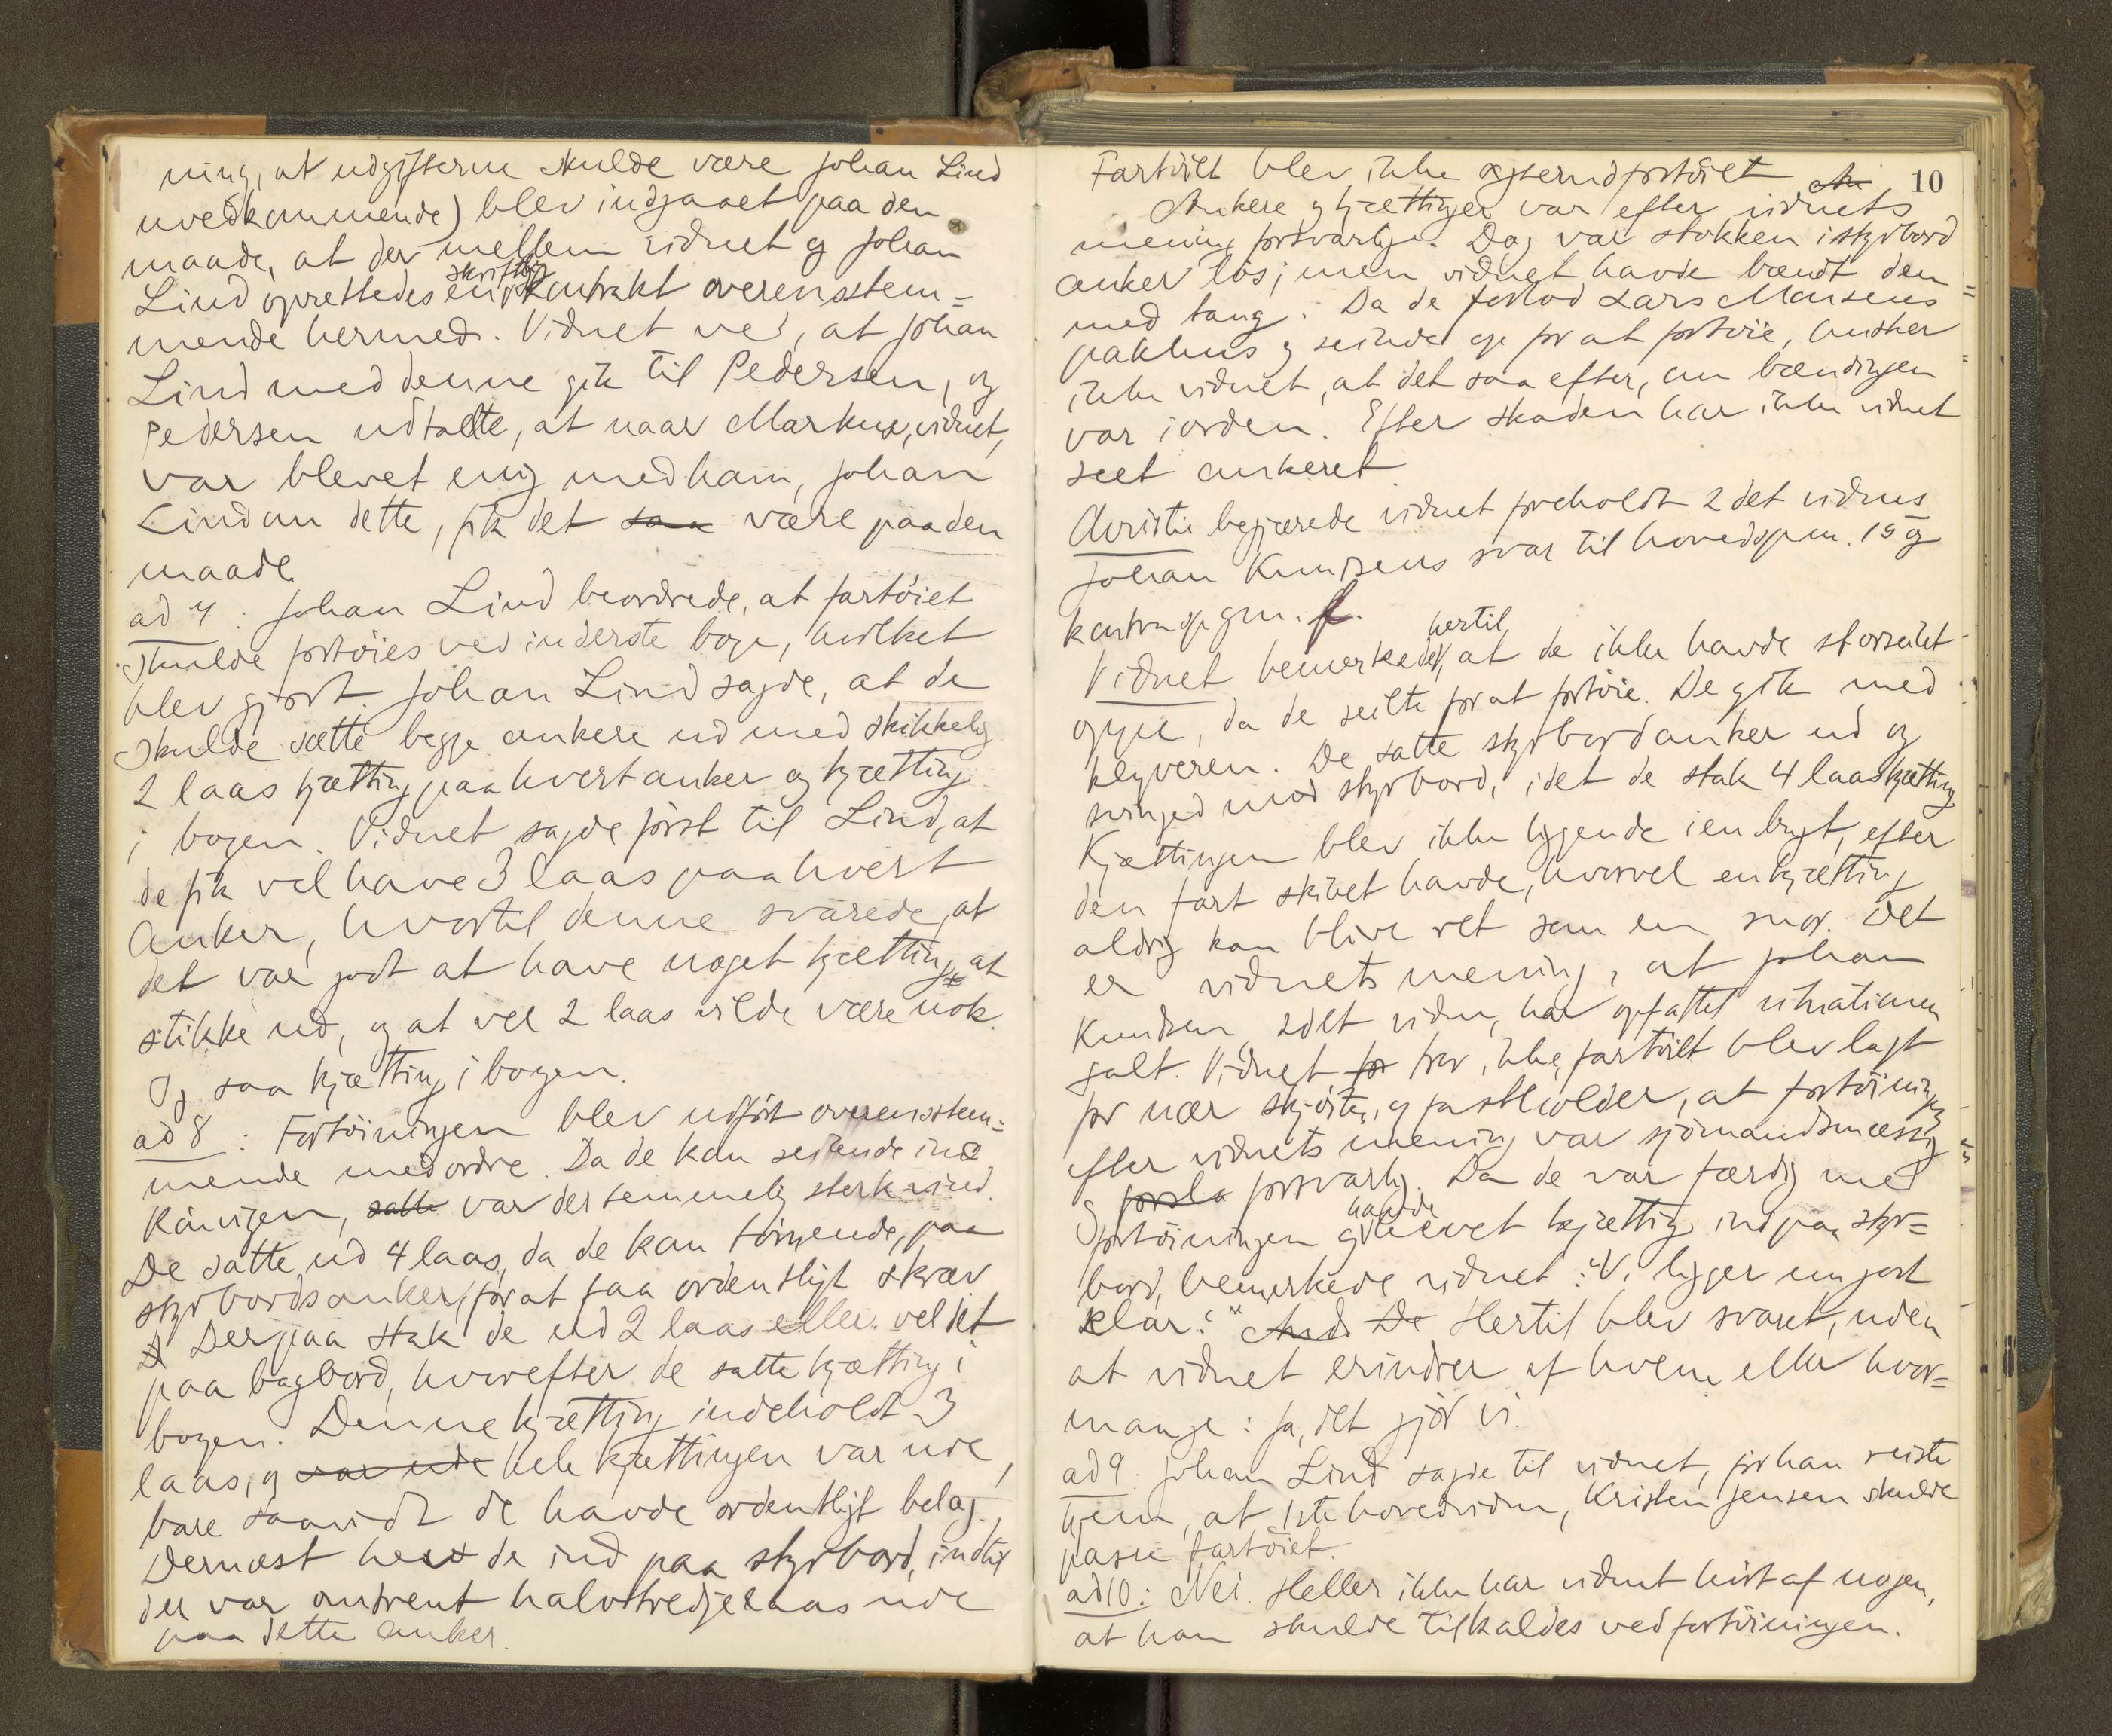 ning, at udgifterne skulde være Johan Lind
uvedkommende) blev indgaaet paa den
maade, at der mellem vidnet og Johan
Lind oprettedes en skriftlig kontrakt overensstem=
mende hermed. Vidnet ved, at Johan
Lind med denne gik til Pedersen, og
Pedersen udtalte, at naar Markus, vidnet,
var blevet enig med ham, Johan
Lind om dette, fik det saa være paa den
maade.
ad 7: Johan Lind beordrede, at fartøiet
skulde fortøies ved inderste boye, hvilket
blev gjort. Johan Lind sagde, at de
skulde sætte begge ankere ud med skikkelig
2 laas kjætting paa hvert anker og kjætting
i boyen. Vidnet sagde først til Lind, at
de fik vel have 3 laas paa hvert
anker, hvortil denne svarede, at
det var godt at have noget kjætting at
stikke ud, og at vel 2 laas vilde være nok.
Og saa kjætting i boyen.
ad 8: Fortøiningen blev udført overensstem=
mende med ordre. Da de kom seilende ind
Kåsvigen, satte var der temmelig sterk vind.
De satte ud 4 laas, da de kom tørnende, paa
styrbords anker, for at faa ordentligt skrev
Derpaa stak de ud 2 laas eller vel det
paa bagbord, hvorefter de satte kjætting i
boyen. Denne kjætting indeholdt 3
laas, og var ude hele kjættingen var ude,
bare saavidt de havde ordentligt belag.
Dernæst hev de ind paa styrbord, indtil
der var omtrent halvtredje laas ude
paa dette anker.
10
Fartøiet blev ikke agterudfortøiet
Ankere og kjættinger var efter vidnets
mening forsvarlige. Dog var stokken i styrbord
anker løs; men vidnet havde bændt den
med taug. Da de forlod Lars Monsens
pakhus og seilede op for at fortøie, husker
ikke vidnet, at det saa efter, om bændingen
var iorden. Efter skaden har ikke vidnet
seet ankeret
Christie begjærede vidnet foreholdt 2det vidnes
Johan Knudsens svar til hovedspm. 15 og
kontraspgm. f.
Vidnet bemerkede hertil, at de ikke havde storseilet
oppe, da de seilte for at fortøie. De gik med
klyveren. De satte styrbord anker ud og
svinged mod styrbord, idet de stak 4 laas kjætting
Kjættingen blev ikke liggende i en bugt, efter
den fart skibet havde, hvorvel en kjætting
aldrig kan blive ret som en snor. Det
er vidnets mening, at Johan
Knudsen, 2det vidne, har opfattet situationen
galt. Vidnet tror ikke, fartøiet blev lagt
for nær skjøite, og fastholder, at fortøiningen
efter vidnets mening var sjømandsmæssig
og forsvarlig. Da de var færdig med
fortøiningen og havde hevet kjætting ind paa styr=
bord, bemerkede vidnet: "Vi ligger nu godt
klar." Hertil blev svaret, uden
at vidnet erindrer af hvem eller hvor=
mange: Ja, det gjør vi.
ad 9. Johan Lind sagde til vidnet, før han reiste
hjem, at 1ste hovedvidne, Kristen Jensen skulde
passe fartøiet.
ad 10: Nei. Heller ikke har vidnet hørt af nogen,
at han skulde tilkaldes ved fortøiningen.